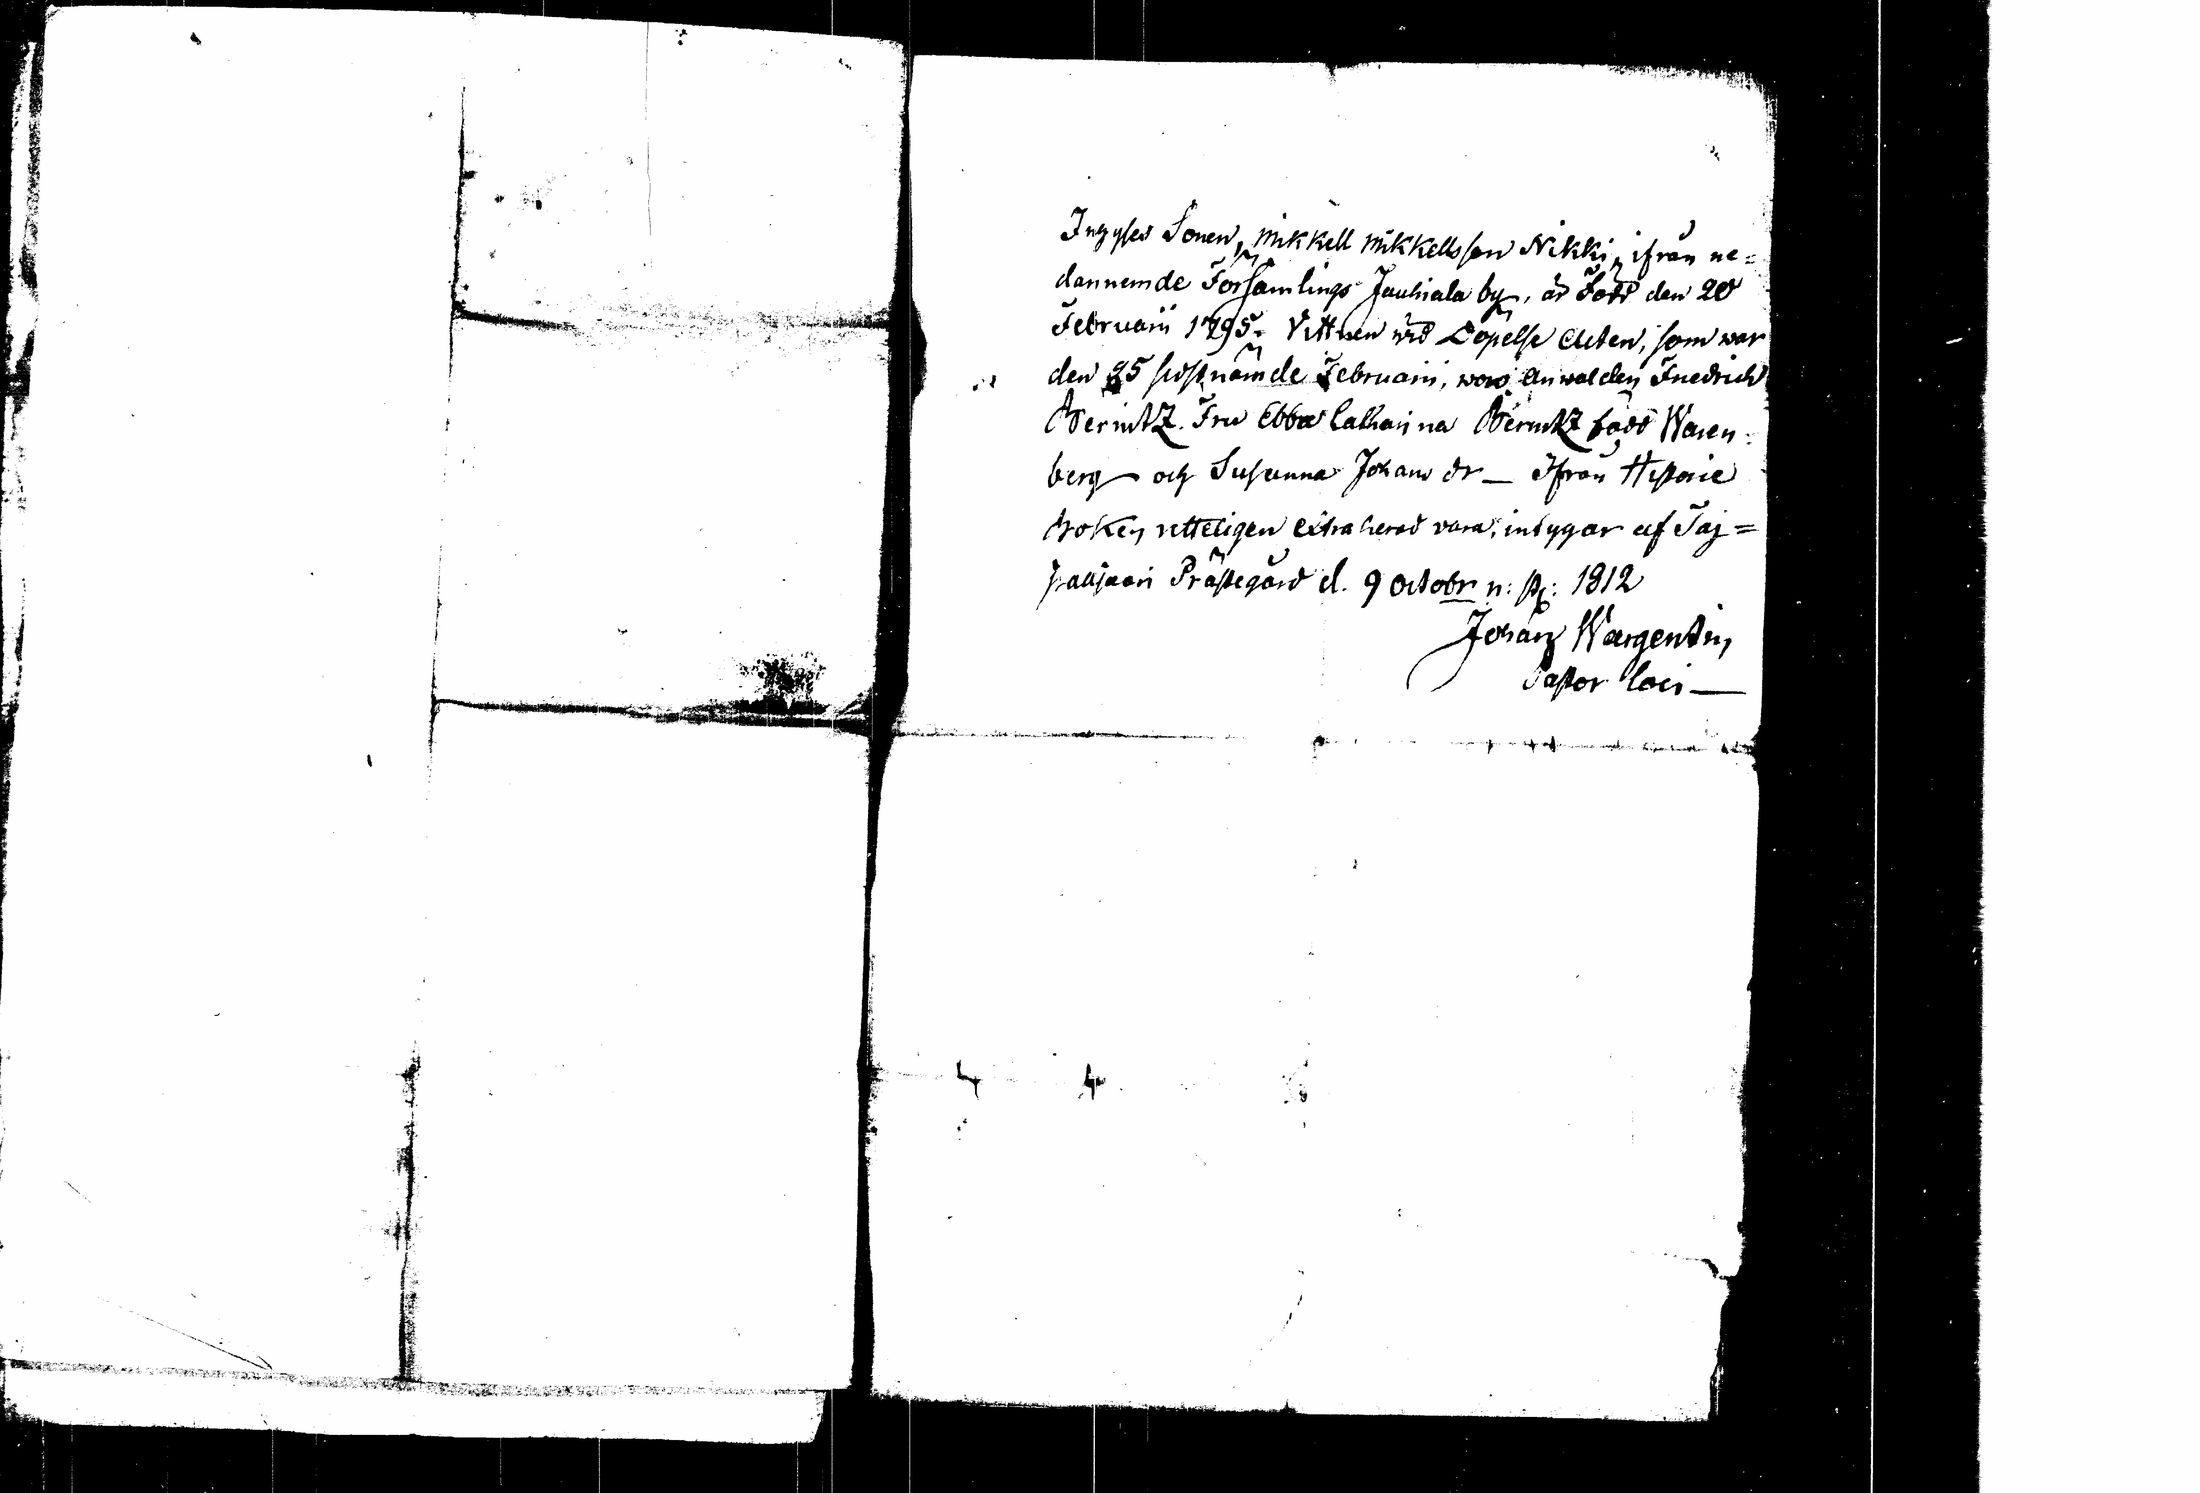 Sonen, Mikkell Mikkellsson Nikki, ifrån ne=
dannemde Församlings Jauhiala by, är Född den 20
Februarii 1795. Vittnen wid Döpelse Acten, som war
den 25 sidstnämde Februarii, woro Anwalden Friedrich
Wernitz. Fru Ebba Catharina Wernitz född Waren=
berg och Susanna Johans dr — Ifrån Historie
boken retteligen extraherad vara, intygar af Taj=
Prästegård d. 9 octobr n: st: 1812
Johan Wargentin,
Pastor Loci —